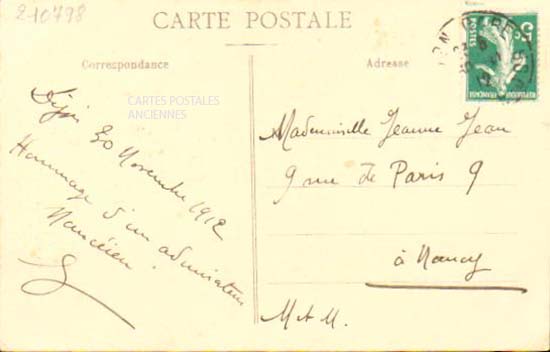 210798
CARTE POSTALE
Correspondance
Adresse
CARTES POSTALES
ANCIENNES
Dijon 30 Novembre 1912
Hommage d'un admirateur
Nancéien.
Mademoiselle Jeanne Jean
9 rue de Paris 9
à Nancy
M et M.
GARE
5c
POSTES
REPUBLIQUE FRANÇAISE